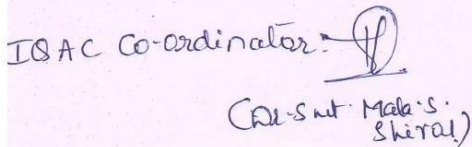 IQAC Co-ordinator:
(Dr. Smt. Mala. S.
Shirol)